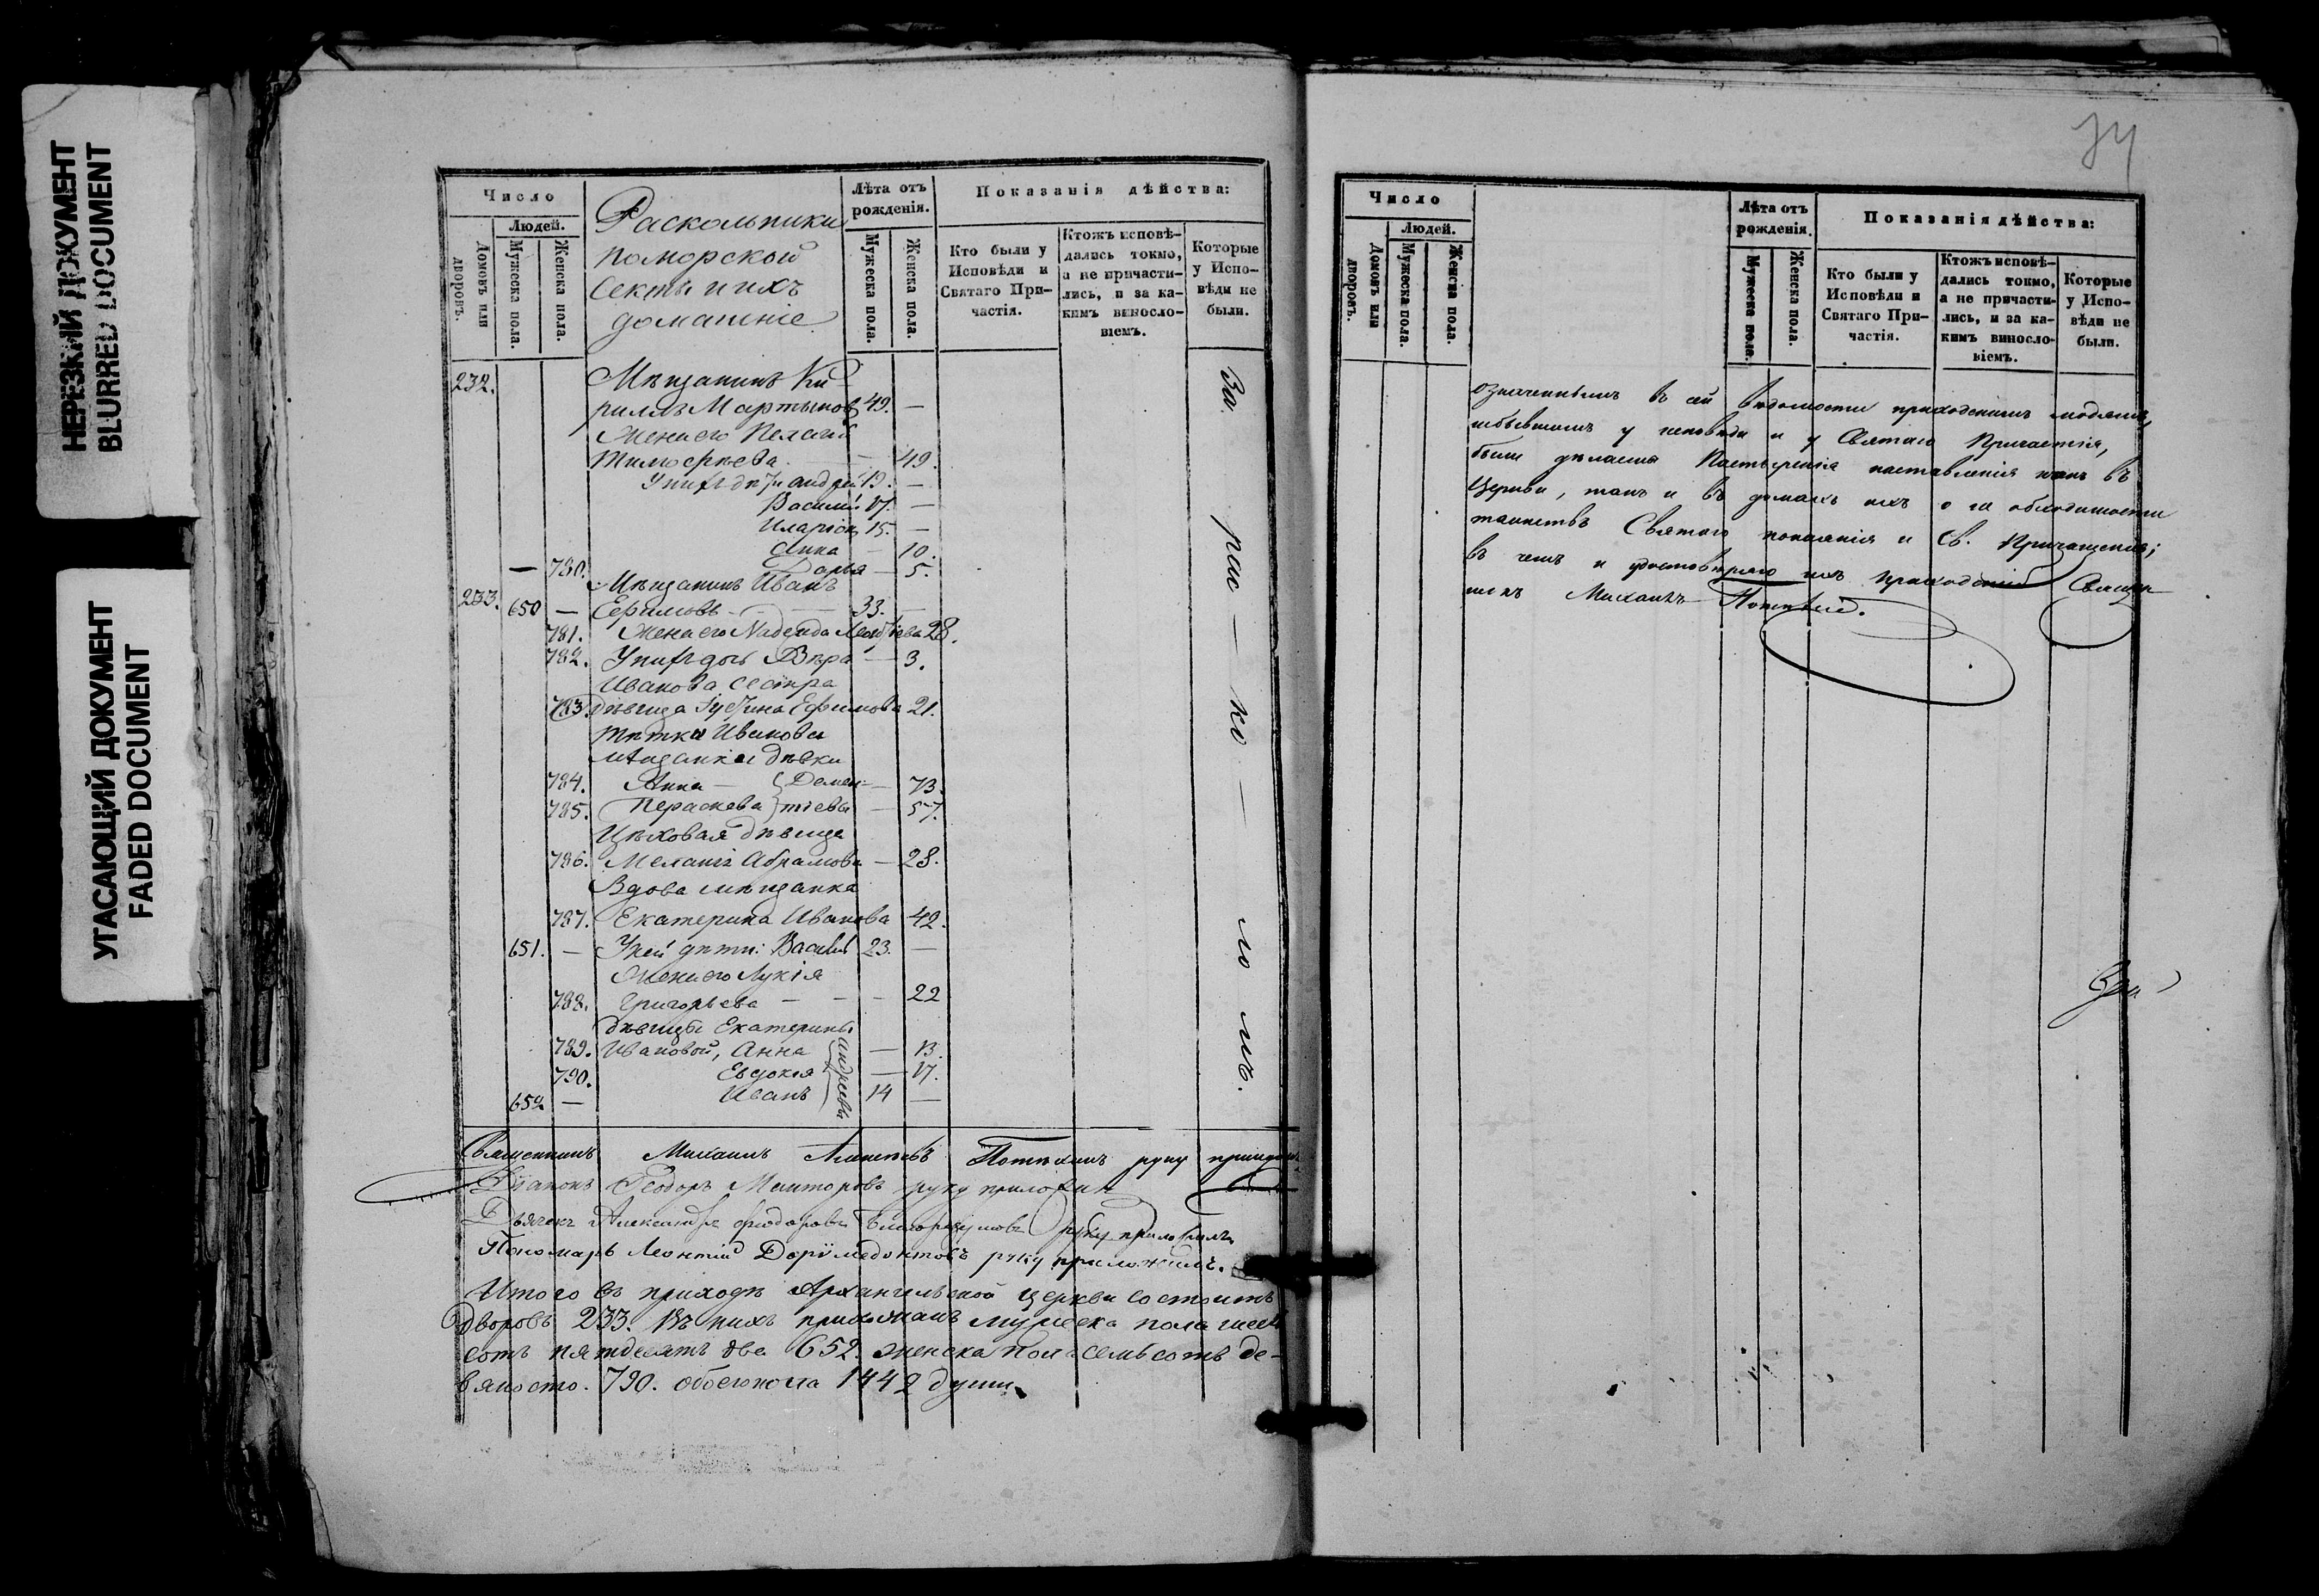 НЕРЕЗКИЙ ДОКУМЕНТ
BLURRED DOCUMENT
УГАСАЮЩИЙ ДОКУМЕНТ
FADED DOCUMENT
Число
Людей.
Домовъ или дворовъ.
Мужеска пола.
Женска пола.
Раскольники
поморской
секты и ихъ
домашніе
Лѣта отъ рожденія.
Мужеска пола.
Женска пола.
Показанія дѣйства:
Кто были у Исповѣди и Святаго Причастія.
Ктожъ исповѣ-
дались токмо,
а не причасти-
лись, и за ка-
кимъ винослo-
віемъ.
Которые
у Испо-
вѣди не
были.
232. Мѣщанинъ Ки-
риллъ Мартыновъ 49. —
Жена его Пелагія
Тимоѳеева — 49.
У нихъ дѣти Андрей 19. —
Василій 17. —
Иларіонъ 15. —
Анна — 10.
— 780. Дарья — 5.
Мѣщанинъ Иванъ
233. 650 — Ефимовъ — 33. —
781. Жена его Надежда 28.
782. У нихъ дочь Вѣра — 3.
Иванова сестра
783. дѣвица Ефимова 21.
Тетки Ивановы
мѣщанки дѣвки
784. Анна — Домен- — 73.
785. Параскева тіевы — 57.
Цѣховая дѣвица
786. Меланія Абрамова — 28.
Вдова мѣщанка
787. Екатерина Иванова 42.
651. — У ней дѣти: Василій 23. —
Жена его Лукія
788. Григорьева — — — 22
дѣвицы Екатерины
789. Ивановой, Анна — 13.
790. Евдокія — 17.
652 — Иванъ 14 —
Андреевы
За рас — ко — ло мъ.
Священникъ Михаилъ Потѣхинъ руку приложилъ
Діаконъ Ѳеодоръ руку приложилъ
Дьячекъ Александръ руку приложилъ
Пономарь Леонтій Доримедонтовъ руку приложилъ.
Итого въ приходѣ Архангельской церкви состоитъ
дворовъ 233. Въ нихъ прихожанъ мужеска пола шесть
сотъ пятдесятъ два 652. женска пола семьсотъ де-
вяносто. 790. обоего пола 1442 души
74
Число
Людей.
Домовъ или дворовъ.
Мужеска пола.
Женска пола.
Лѣта отъ рожденія.
Мужеска пола.
Женска пола.
Показанія дѣйства:
Кто были у Исповѣди и Святаго Причастія.
Ктожъ исповѣ-
дались токмо,
а не причасти-
лись, и за ка-
кимъ винослo-
віемъ.
Которые
у Испо-
вѣди не
были.
означеннымъ въ сей вѣдомости приходскимъ людямъ,
небывшимъ у исповѣди и у Святаго Причастія,
были дѣланы Пастырскія наставленія какъ въ
Церкви, такъ и въ домахъ ихъ о необходимости
таинствъ Святаго покаянія и Св. Причащенія;
въ чемъ и удостовѣряю ихъ приходскій Священ-
никъ Михаилъ Потѣхинъ.